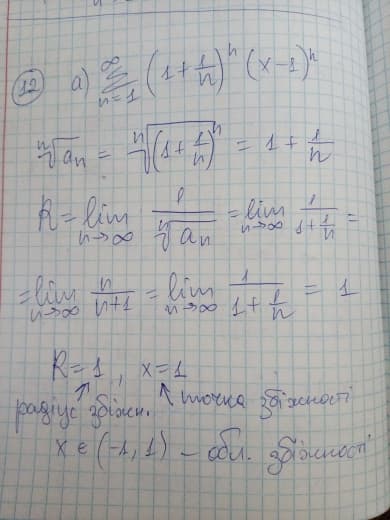 12 а) ∞ ∑ n=1 (1 + 1/n)^n (x-1)^n
ⁿ√aₙ = ⁿ√(1 + 1/n)^n = 1 + 1/n
R = lim n→∞ 1/ⁿ√aₙ = lim n→∞ 1/(1 + 1/n) =
= lim n→∞ n/(n+1) = lim n→∞ 1/(1 + 1/n) = 1
R=1 , x=1
радіус збіжн. точка збіжності
x ∈ (-1, 1) – обл. збіжності